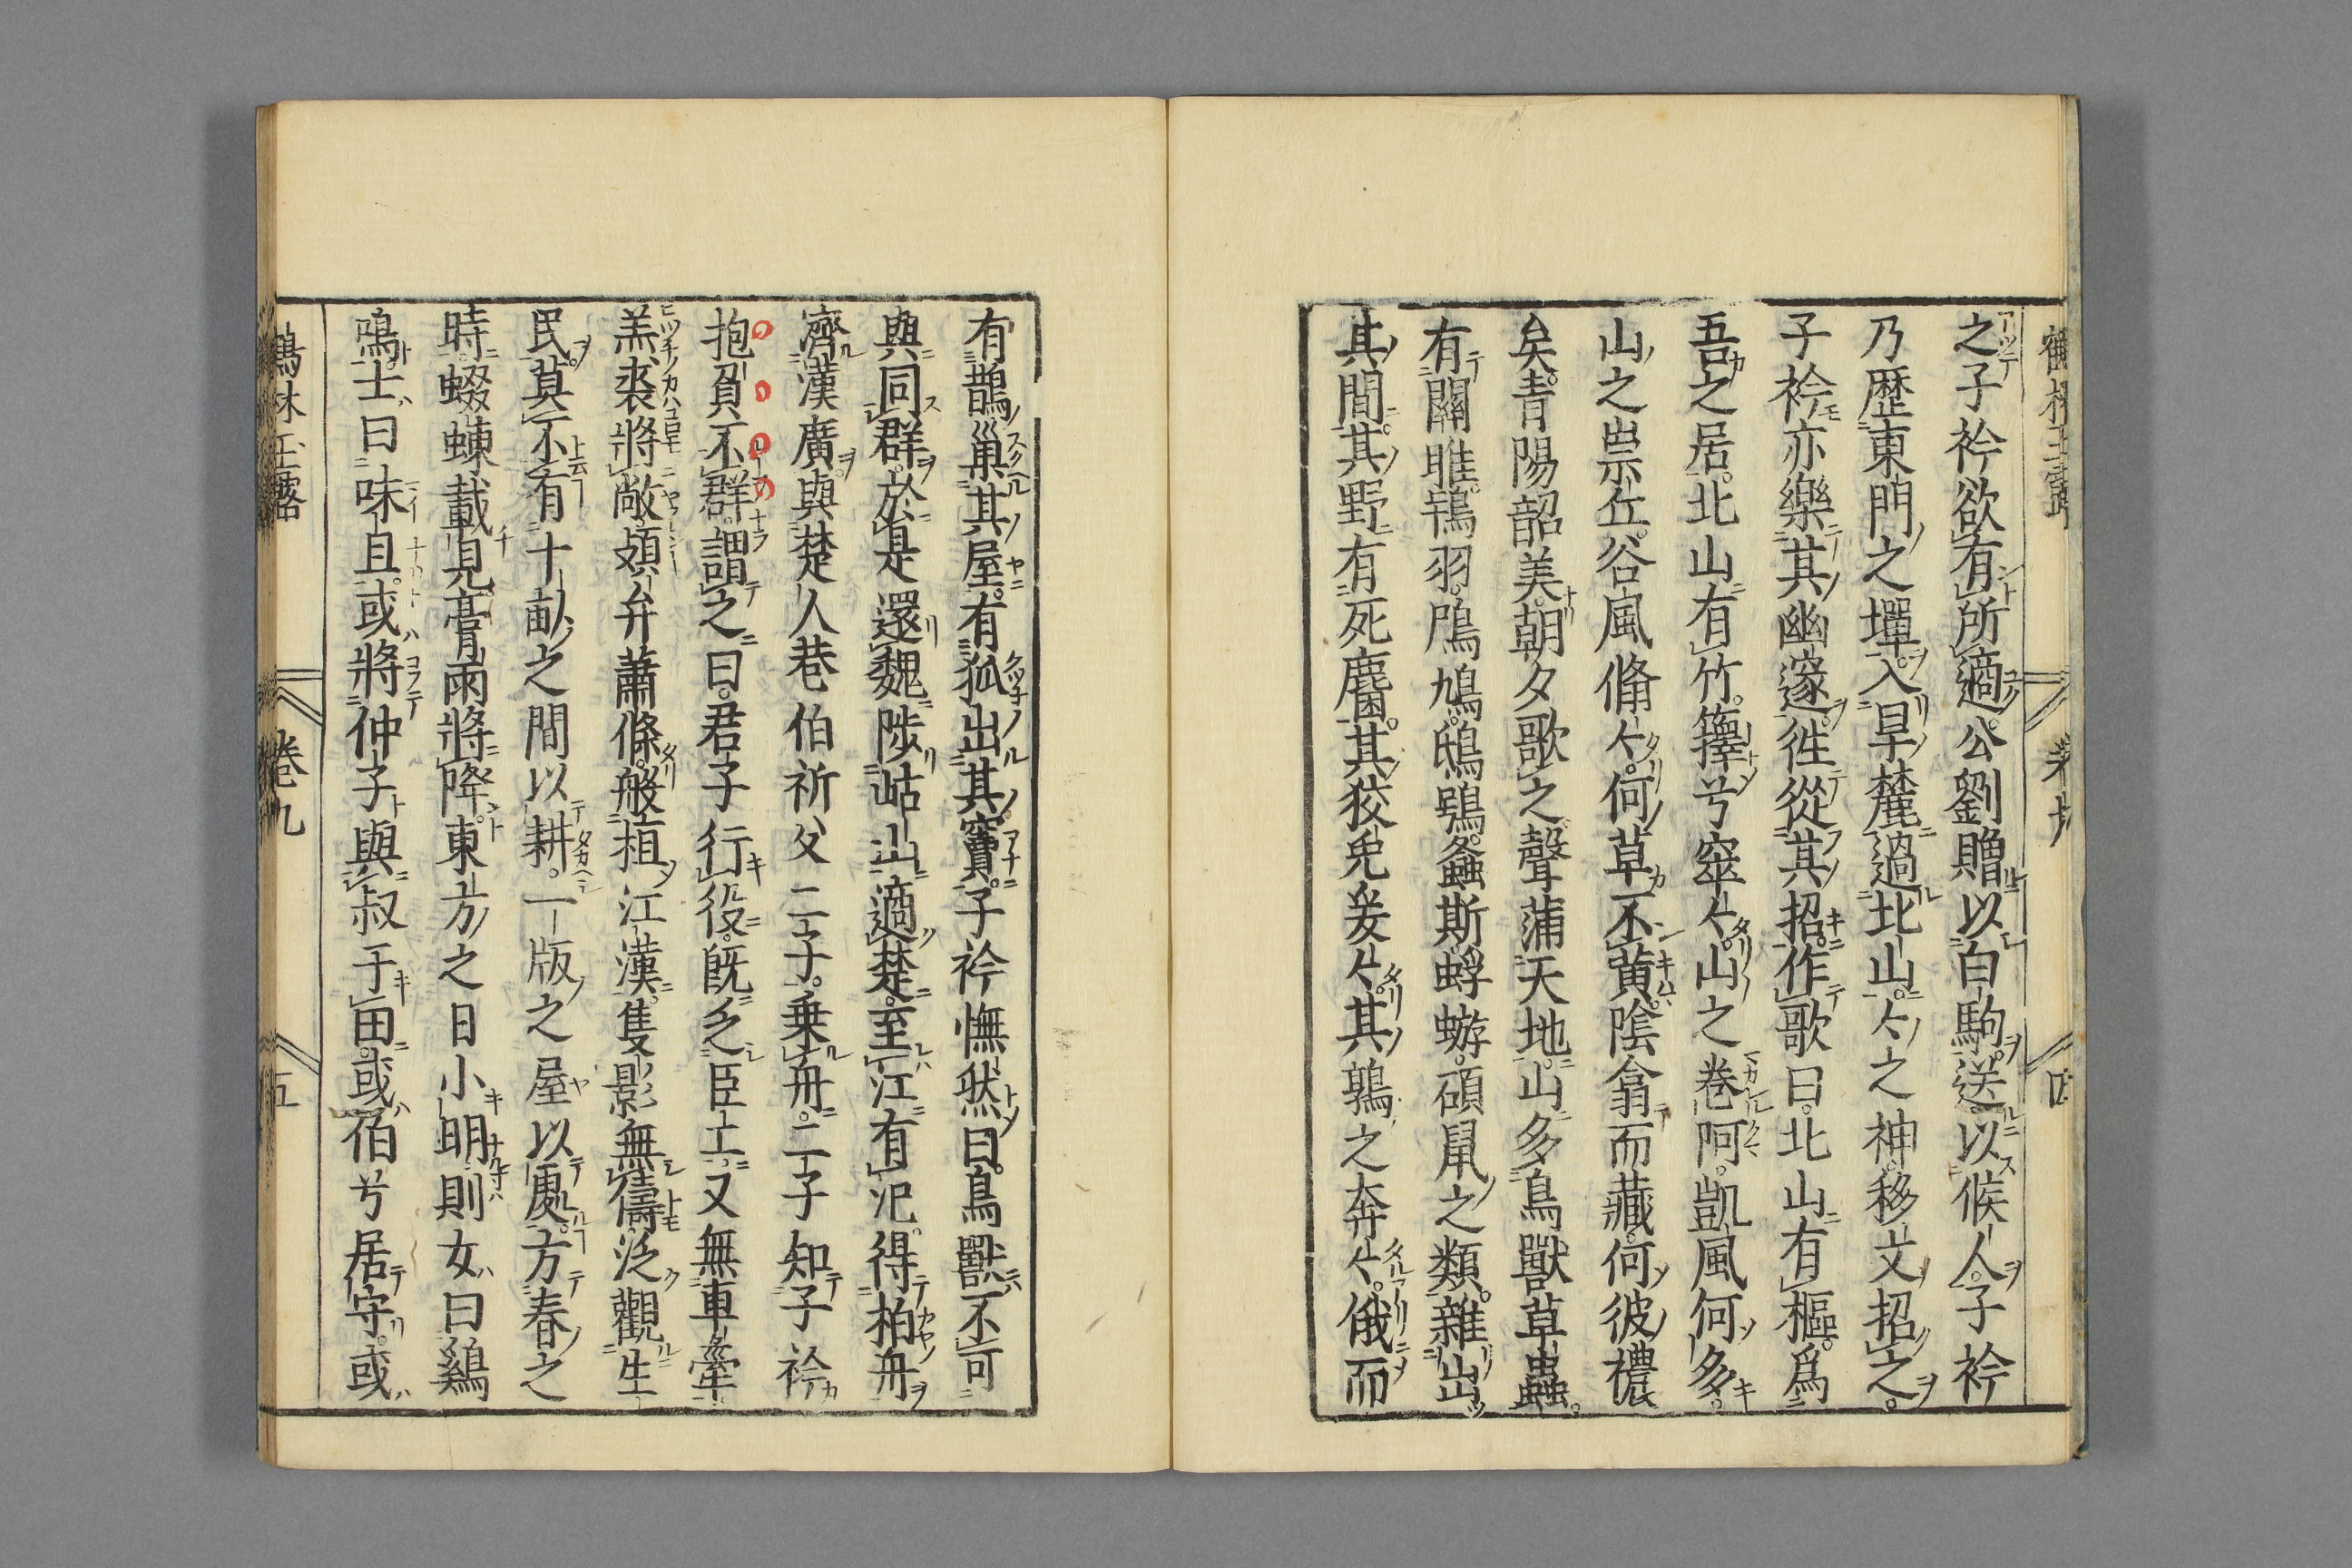 之子衿欲有所適公劉贈以白駒送以候人子衿
乃歷東門之墠入旱麓過北山〻之神移文招之
子衿亦樂其幽邃徃從其招作歌曰北山有樞爲
吾之居北山有竹籜兮崒〻山之卷阿凱風何多
山之崇丘谷風脩〻何草不黄陰翕而藏何彼穠
矣青陽韶美朝夕歌之聲蒲天地山多鳥獸草蟲
有關雎鴇羽鳲鳩鴟鴞螽斯蜉蝣碩鼠之類雜出
其間其野有死麕其狡兎爰〻其鶉之奔〻俄而
有鵲巢其屋有狐出其竇子衿憮然曰鳥獸不可
與同群於是還魏陟岵山適楚至江有汜得柏舟
濟漢廣與楚人巷伯祈父二子乗舟二子知子衿
抱負不群謂之曰君子行役既乏臣工又無車牽
羔裘將敞頍弁蕭條般桓江漢隻影無儔泛觀生
民莫不有十畝之間以耕一版之屋以處方春之
時蝃蝀載見膏雨將降東方之日小明則女曰鷄
鳴士曰昧且或將仲子與叔于田或伯兮居守或
鶴林玉露
卷九
五